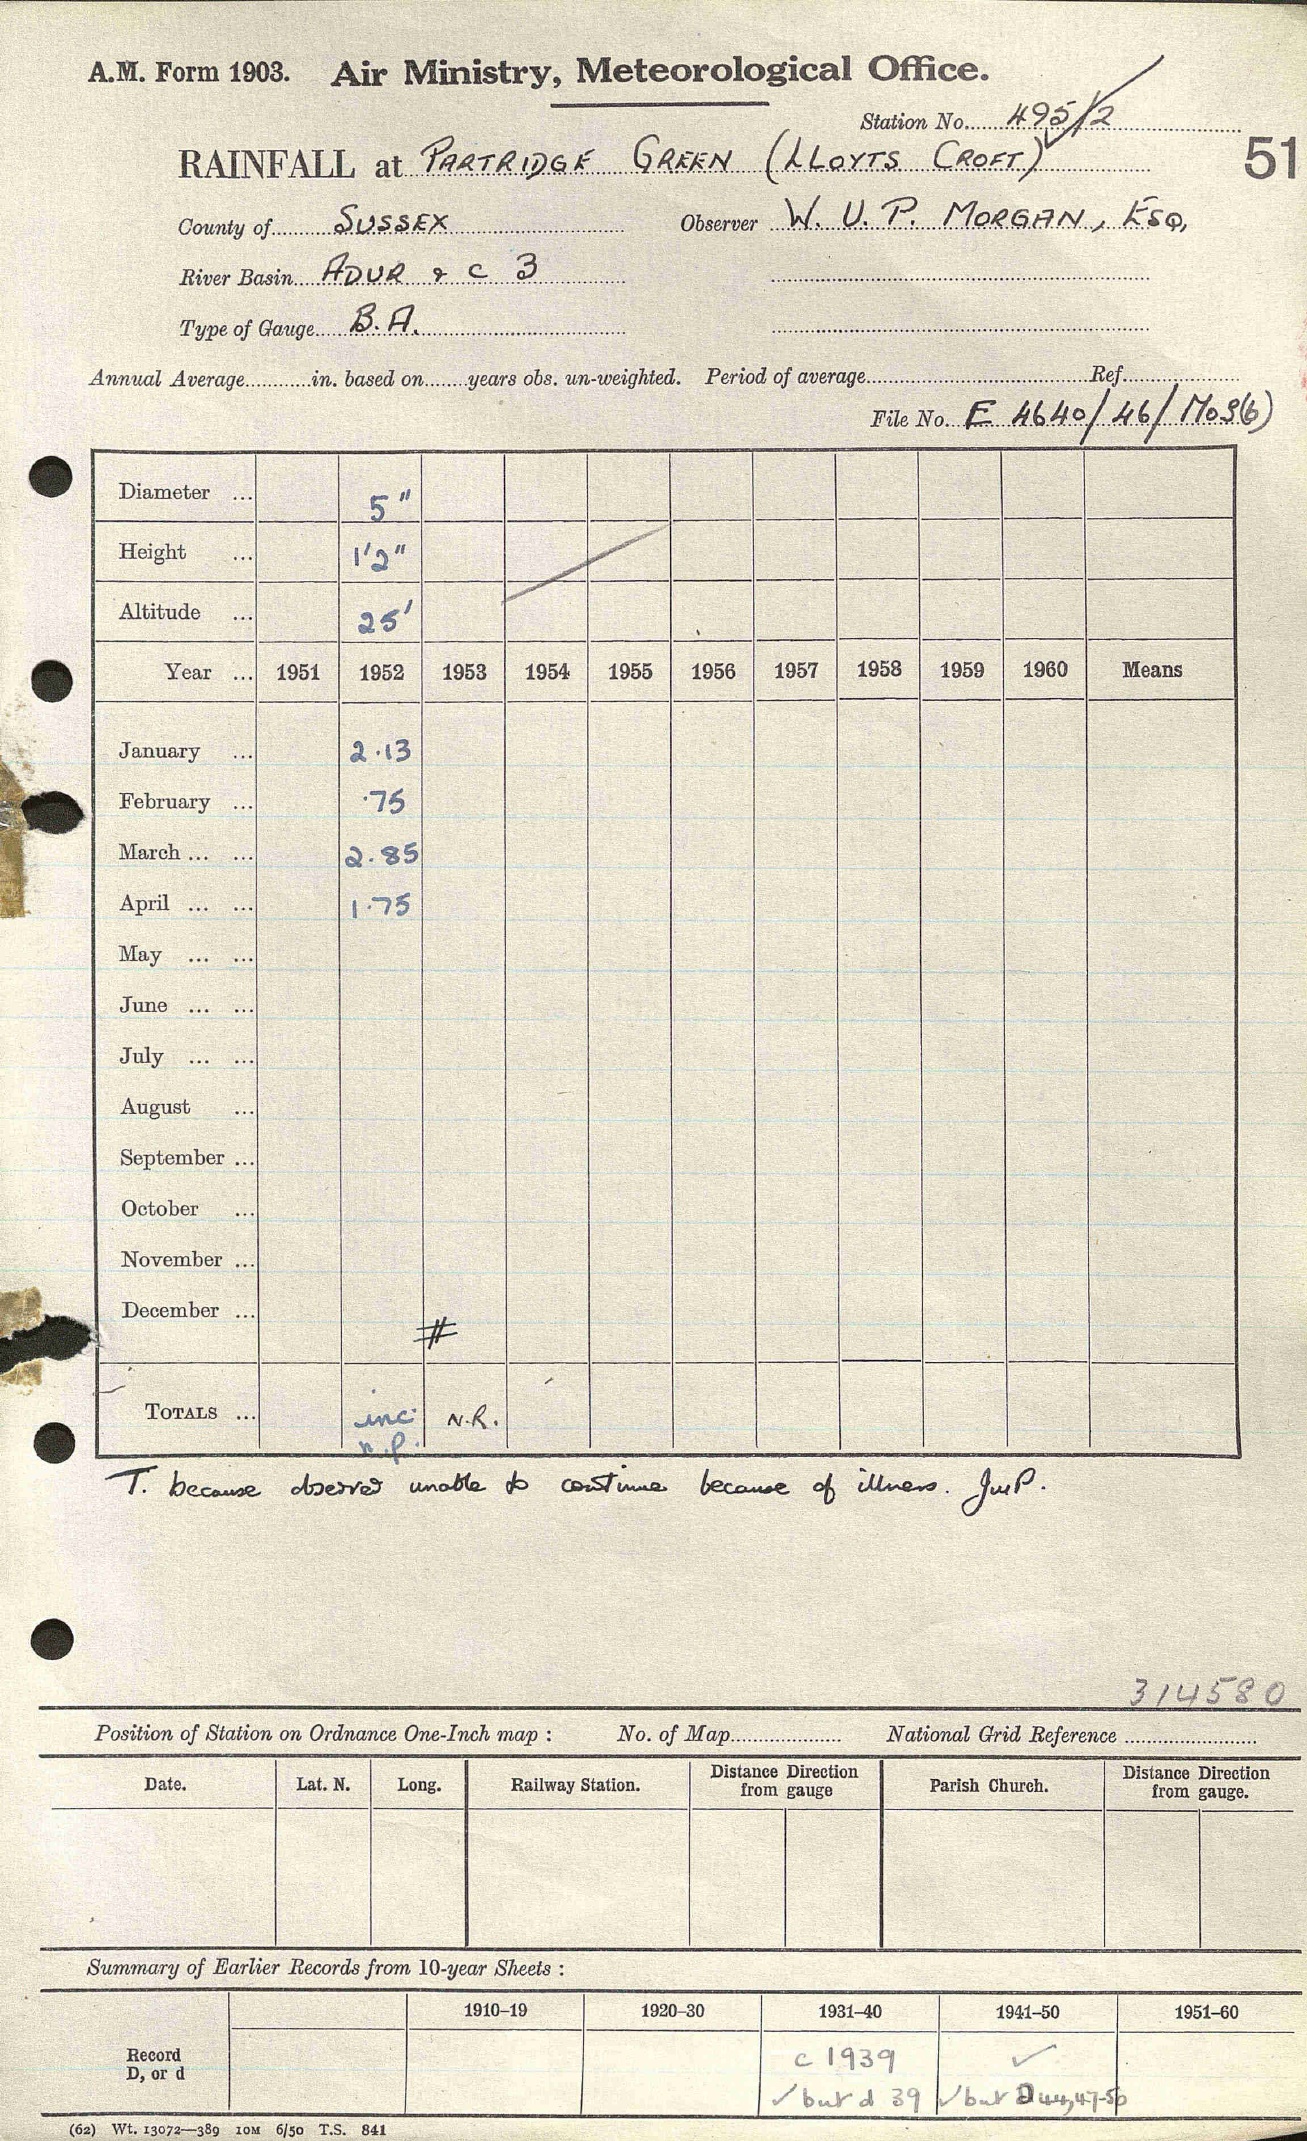 A.M. Form 1903. Air Ministry, Meteorological Office.
Station No. 495/2
RAINFALL at PARTRIDGE GREEN (LLOYTS CROFT) 51
County of SUSSEX Observer W. U. P. MORGAN, ESQ,
River Basin ADUR & C 3
Type of Gauge B.A.
Annual Average in. based on years obs. un-weighted. Period of average Ref.
File No. E 4640/46/M03(b)
Diameter ... 5"
Height ... 1'2"
Altitude ... 25'
Year ... 1951 1952 1953 1954 1955 1956 1957 1958 1959 1960 Means
January ... 2.13
February ... .75
March ... ... 2.85
April ... ... 1.75
May ... ...
June ... ...
July ... ...
August ...
September ...
October ...
November ...
December ...
#
TOTALS ... inc. N.R.
n.p.
T. because observer unable to continue because of illness. JMP.
314580
Position of Station on Ordnance One-Inch map : No. of Map National Grid Reference
Date. Lat. N. Long. Railway Station. Distance Direction from gauge Parish Church. Distance Direction from gauge.
Summary of Earlier Records from 10-year Sheets :
1910–19 1920–30 1931–40 1941–50 1951–60
Record c 1939 ✓
D, or d ✓ but d 39 ✓ but D 44, 47-50
(62) Wt. 13072—389 10M 6/50 T.S. 841